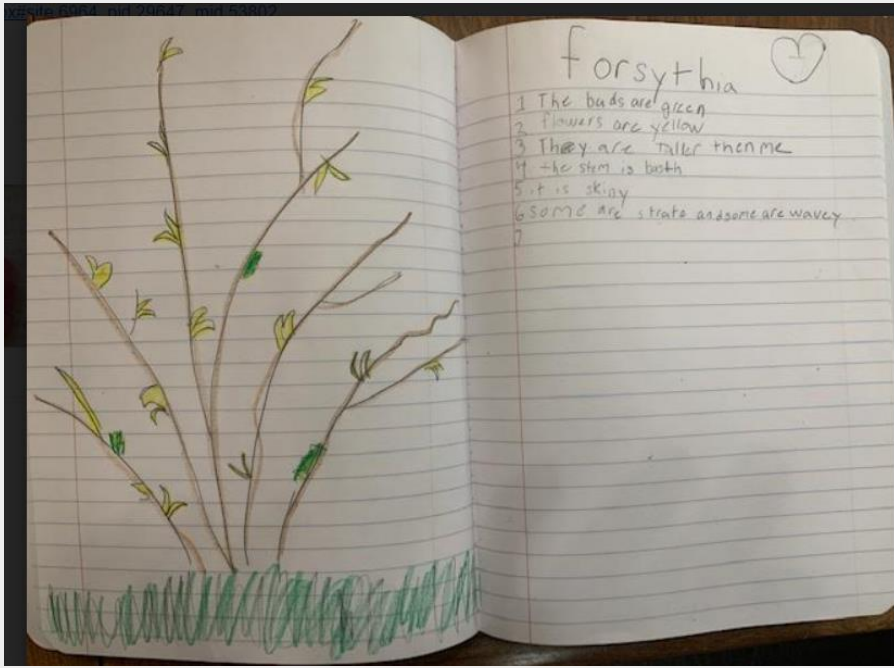 ix#site 6964, nid 29647, mid 53802
forsythia
1 The buds are green
2 flowers are yellow
3 They are taller then me
4 the stem is both
5 it is skiny
6 some are strate and some are wavey
7